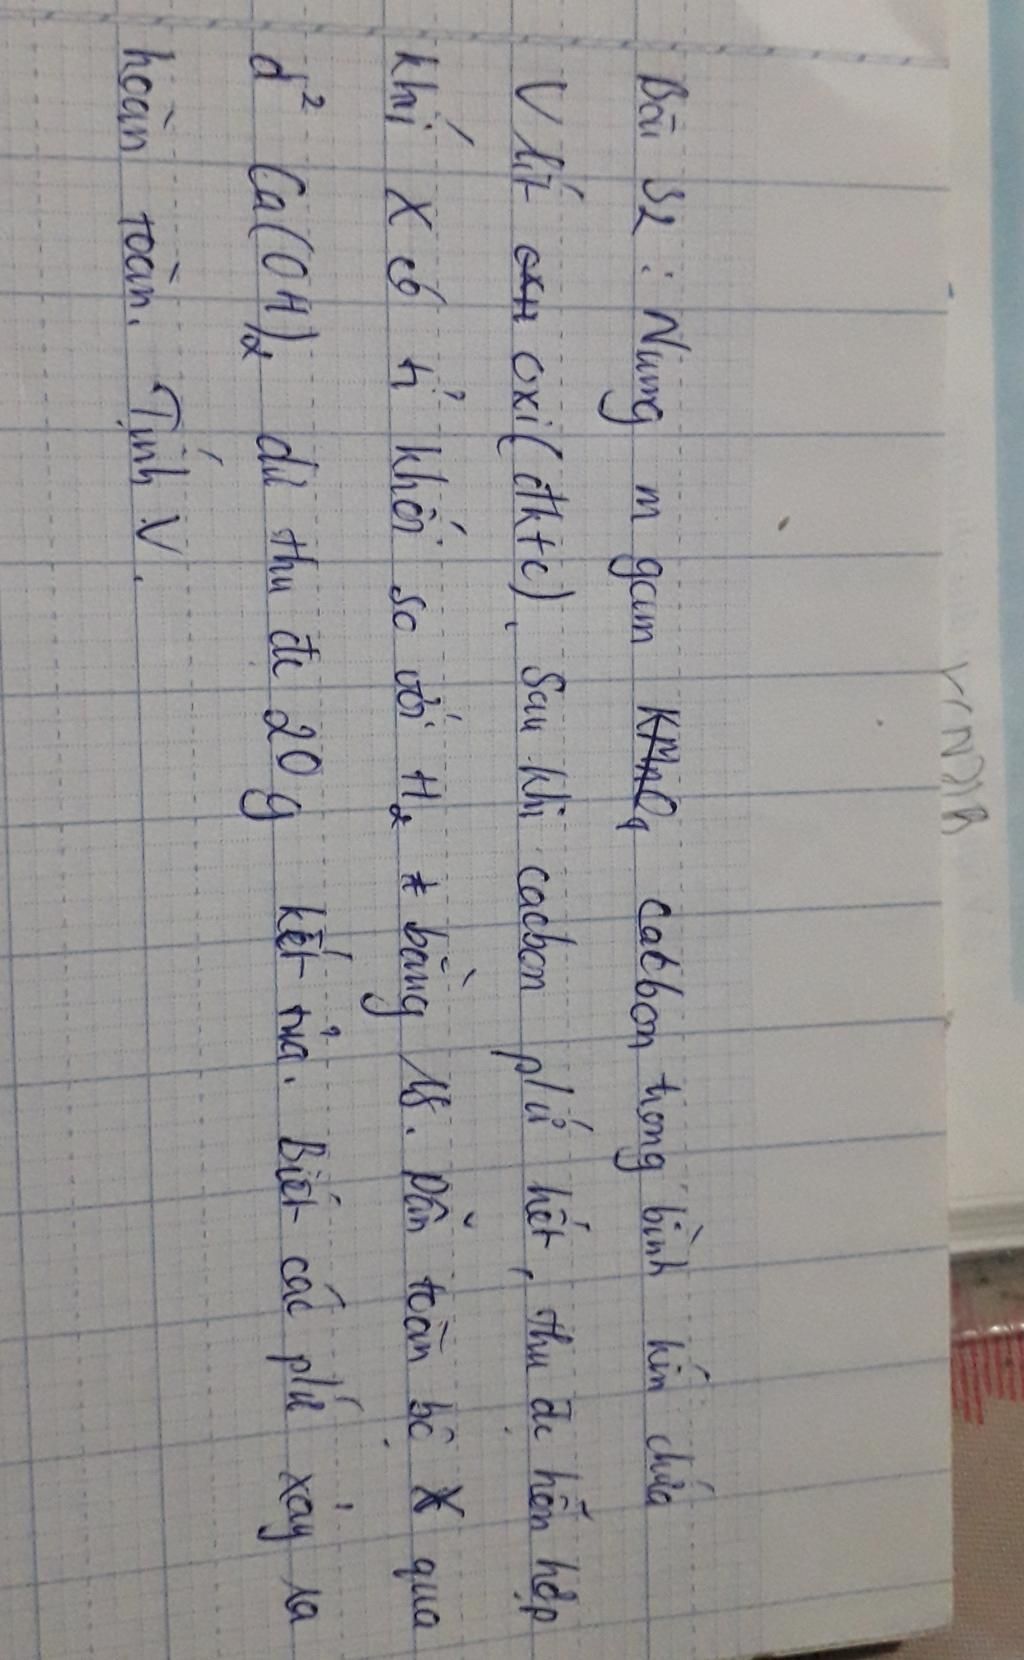 Bài 32 : Nung m gam cacbon trong bình kín chứa
V lít oxi (đktc). Sau khi cacbon pứ hết, thu đc hỗn hợp
khí X có tỉ khối so với H2 bằng 18. Dẫn toàn bộ X qua
d² Ca(OH)2 dư thu đc 20g kết tủa. Biết các pứ xảy ra
hoàn toàn. Tính V.